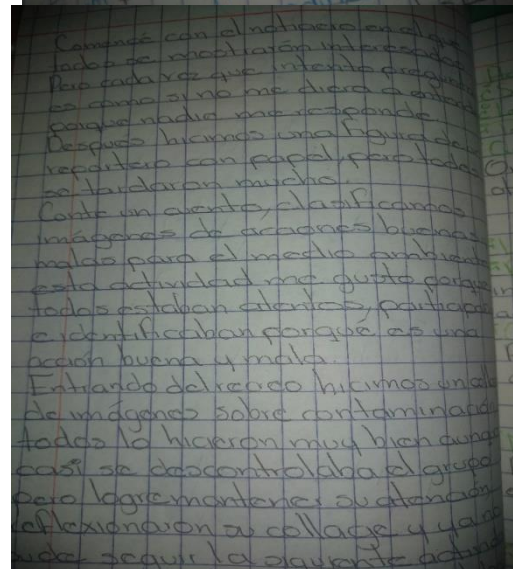 Comencé con el noticiero en el que
todos se mostrarón interesados
Pero cada vez que intento
es como si no me diera a
porque nadie me responde.
Después hicimos una figura del
reportero con papel, pero todos
se tardaron mucho.
Conte un cuento, clasificamos
imágenes de acciones buenas
malas para el medio ambiente
esta actividad me gusto porque
todos estaban atentos,
e identificaban porqué es una
acción buena y mala.
Entrando del recreo hicimos un
de imágenes sobre contaminación
todos lo hicieron muy bien
casi se descontrolaba el grupo
pero logre mantener su atención
reflexionaron su collage y ya no
pude seguir la siguiente